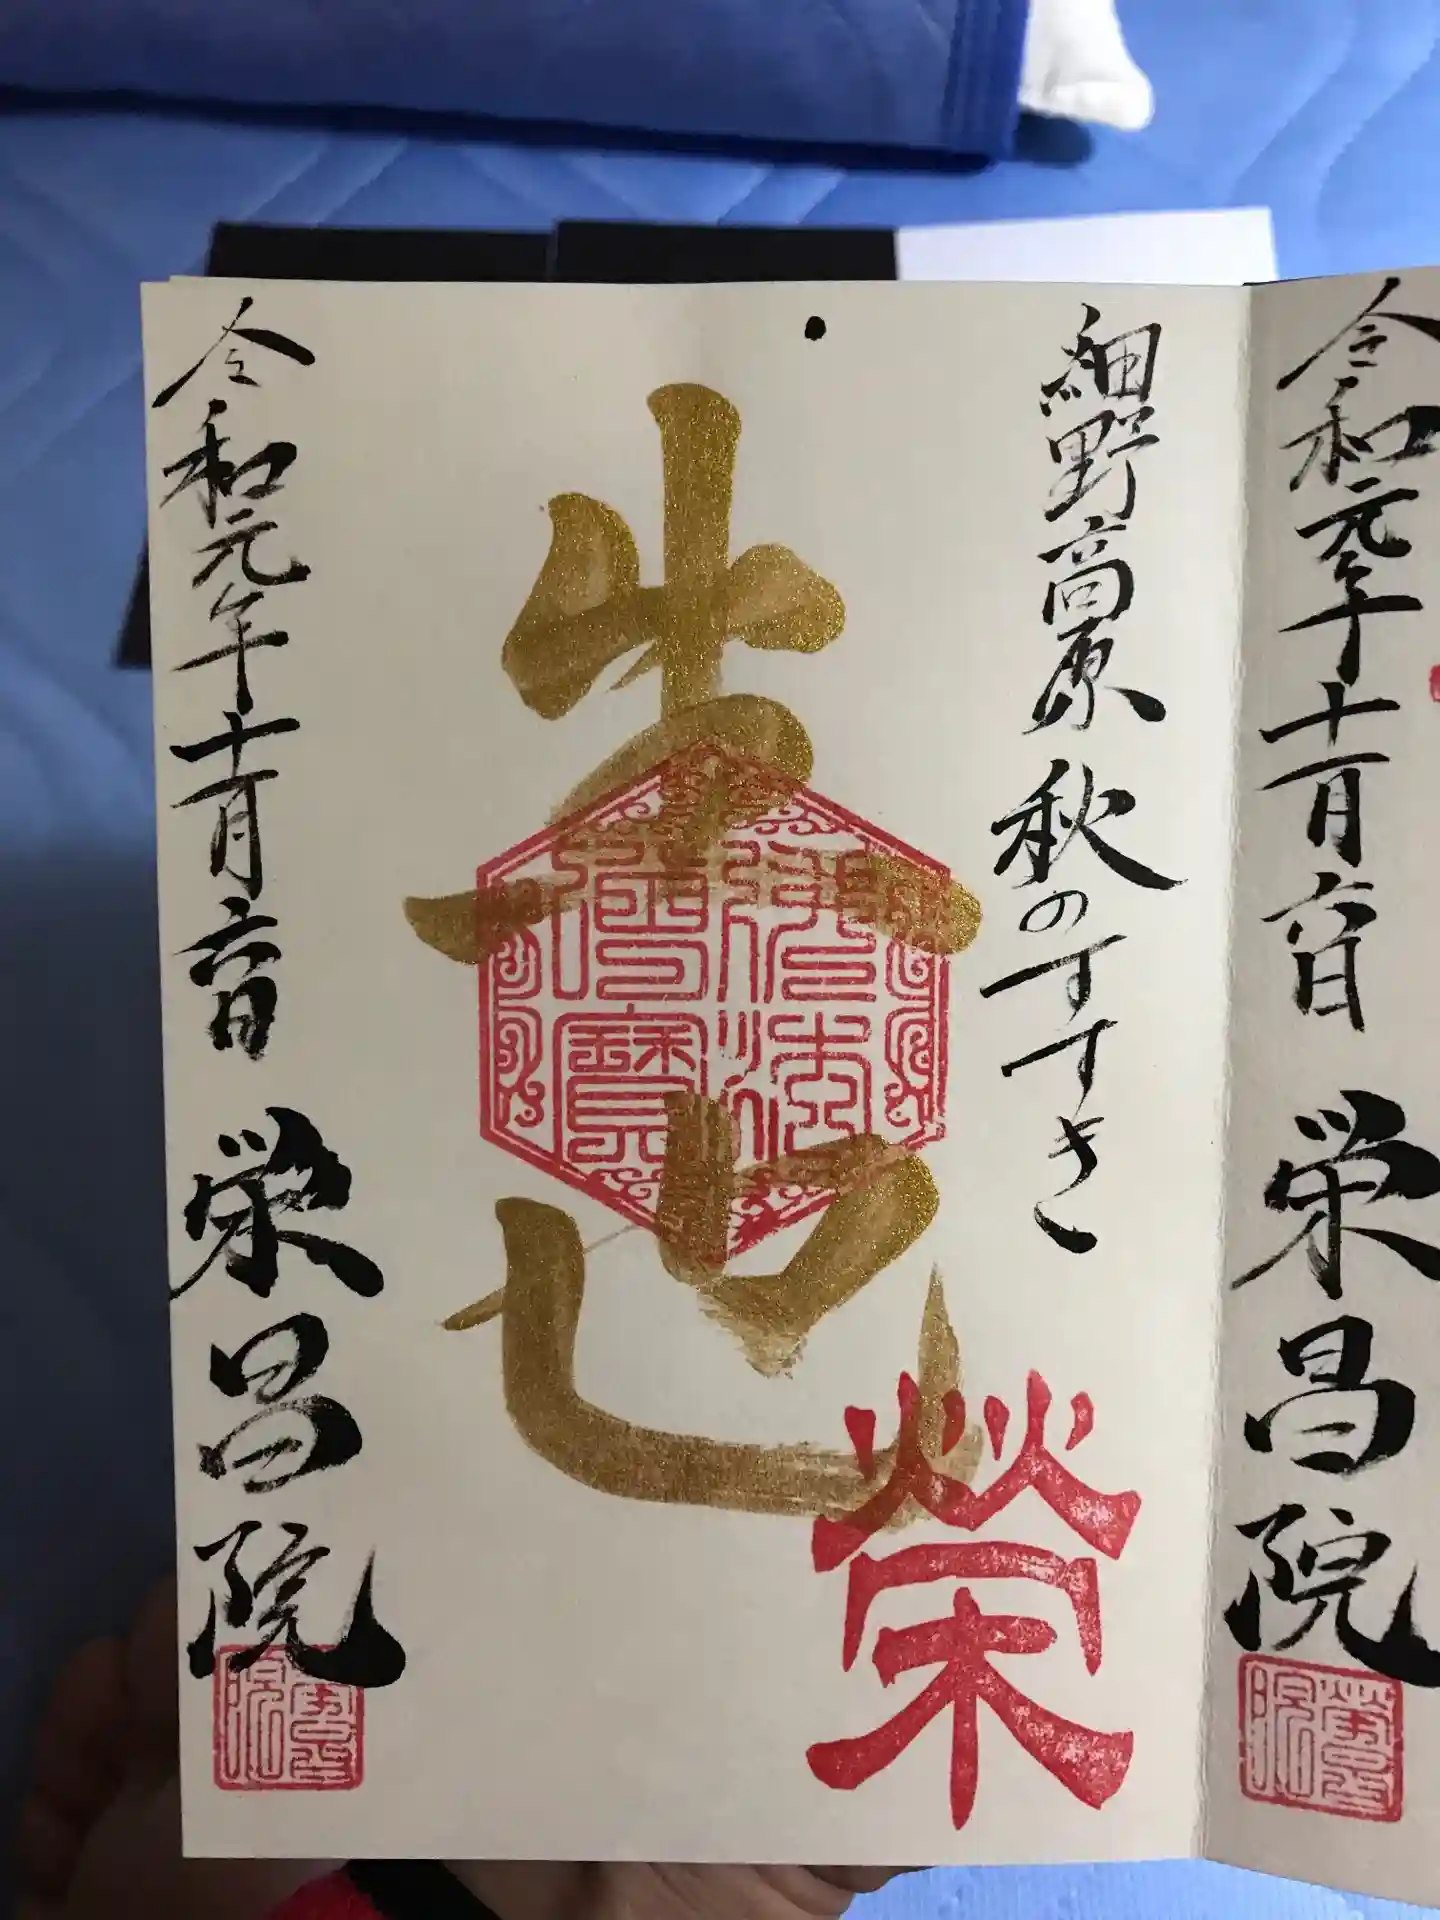 令和元年十一月六日 栄昌院
細野高原 秋のすすき
佛法僧寶
榮
令和元年十一月六日 栄昌院